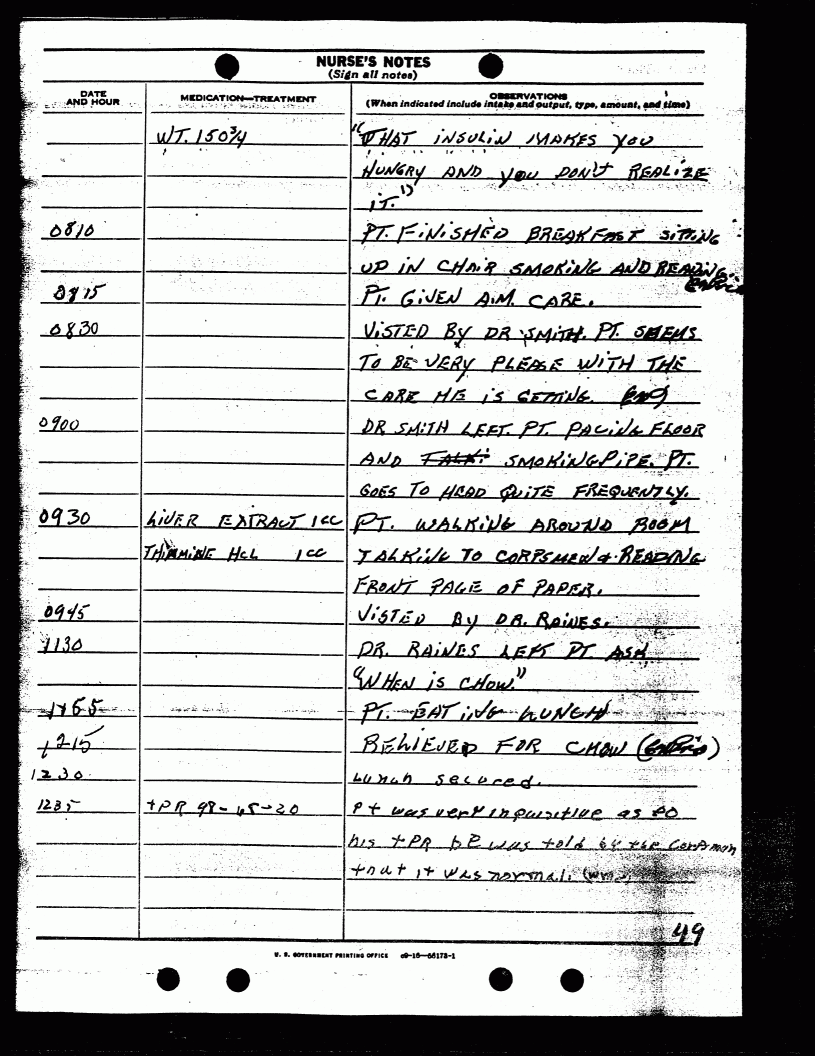 NURSE'S NOTES
(Sign all notes)
DATE AND HOUR
MEDICATION—TREATMENT
OBSERVATIONS
(When indicated include intake and output, type, amount, and time)
WT. 150¾ "THAT INSULIN MAKES YOU
HUNGRY AND YOU DON'T REALIZE
IT."
0810 PT. FINISHED BREAKFAST SITTING
UP IN CHAIR SMOKING AND READING.
0815 PT. GIVEN A.M. CARE.
0830 VISTED BY DR SMITH. PT. SEEMS
TO BE VERY PLEASE WITH THE
CARE HE IS GETTING.
0900 DR SMITH LEFT. PT. PACING FLOOR
AND TALKI SMOKING PIPE. PT.
GOES TO HEAD QUITE FREQUENTLY.
0930 LIVER EXTRACT 1CC PT. WALKING AROUND ROOM
THIAMINE HCL 1CC TALKING TO CORPSMEN & READING
FRONT PAGE OF PAPER.
0945 VISTED BY DR. RAINES.
1130 DR. RAINES LEFT PT ASK
"WHEN IS CHOW."
1155 PT. EATING LUNCH
1215 RELIEVED FOR CHOW
1230 Lunch secured.
1235 TPR 98-  -20 Pt was very inquisitive as to
his TPR he was told by the Corpsman
that it was normal.
49
U. S. GOVERNMENT PRINTING OFFICE c9-16—66173-1